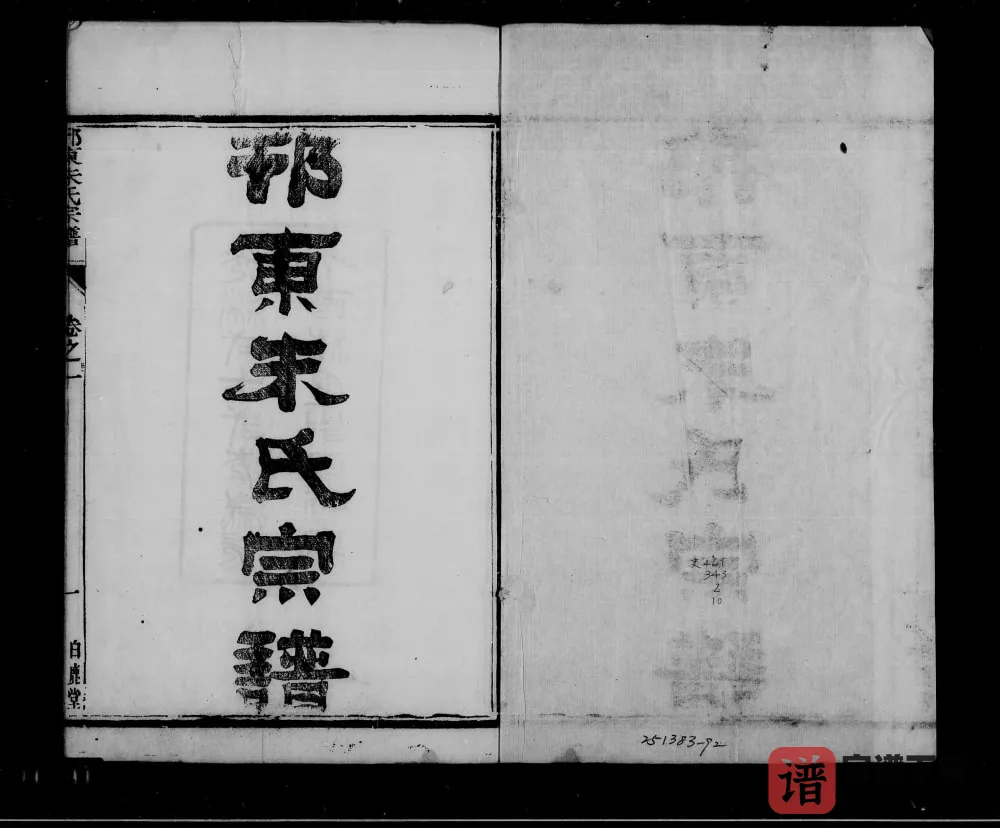 邟東朱氏宗譜
邟東朱氏宗譜
卷之一
一
白鹿堂
史421
343
2
10
251383-92
谱